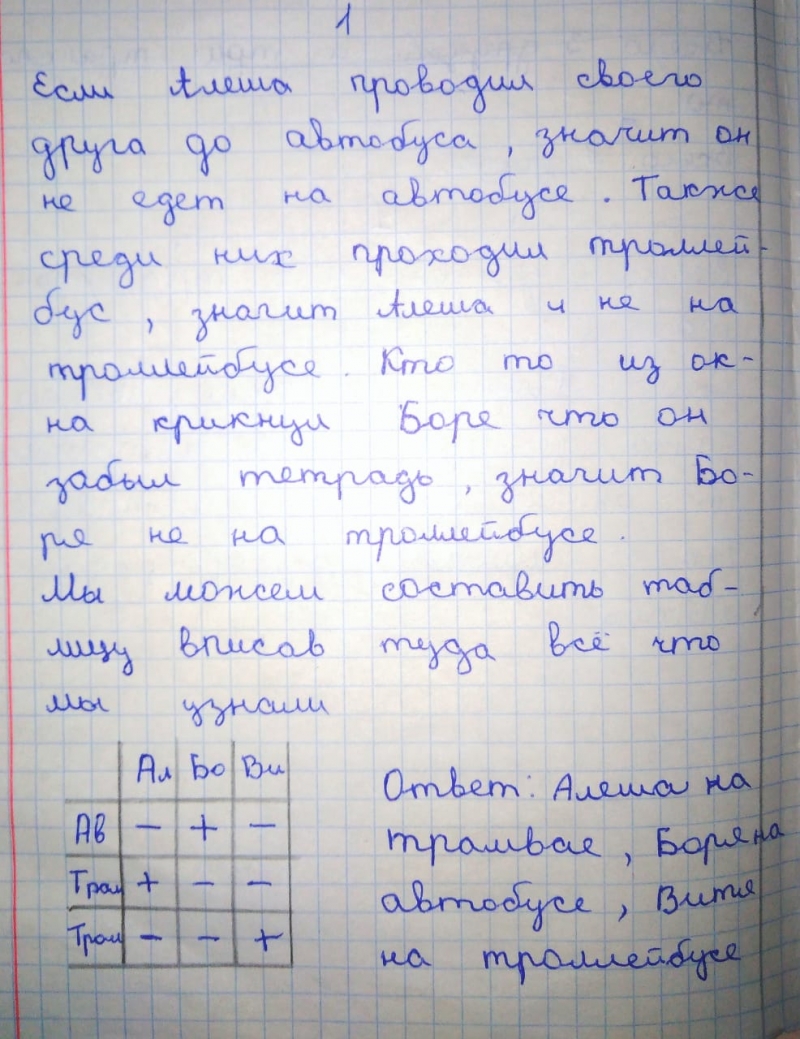 1
Если Алеша проводил своего
друга до автобуса, значит он
не едет на автобусе. Также
среди них проходил троллей-
бус, значит Алеша и не на
троллейбусе. Кто то из ок-
на крикнул Боре что он
забыл тетрадь, значит Бо-
ря не на троллейбусе.
Мы можем составить таб-
лицу вписав туда всё что
мы узнали
Ал Бо Ви
Ав - + -
Трам + - -
Трол - - +
Ответ: Алеша на
трамвае, Боря на
автобусе, Витя
на троллейбусе